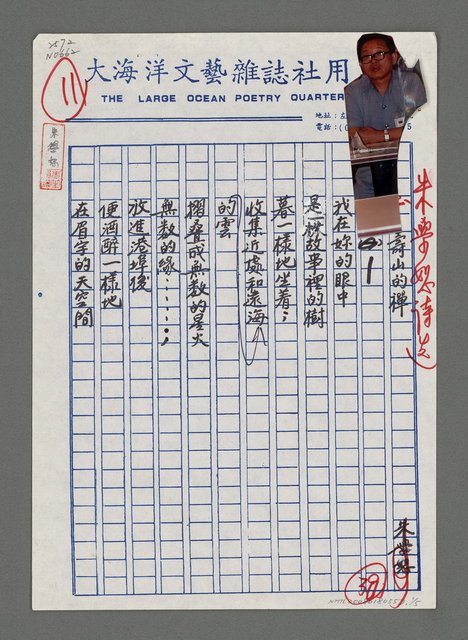 2572
N0662
11
大海洋文藝雜誌社用
THE LARGE OCEAN POETRY QUARTER
地址：左
電話：(0
5
朱學恕
朱學恕詩
壽山的禪
我在妳的眼中
是一棵故事裡的樹
暮一樣地坐着；
收集近處和遠海
的雲
摺疊成無數的星火
無數的緣……；
放進港埠後
便酒醉一樣地
在眉宇的天空間
朱學恕
37